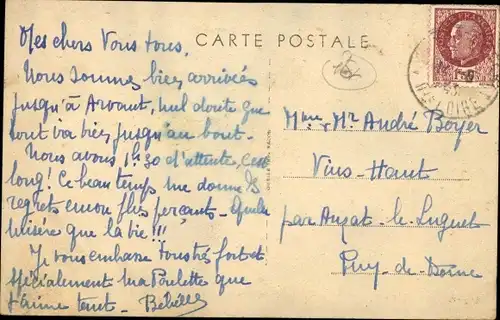 Mes chers Vous tous.
CARTE POSTALE
Nous sommes bien arrivés
jusqu'à Arvant, nul doute que
tout va bien jusqu'au bout.
Nous avons 1h30 d'attente, c'est
long! Ce beau temps me donne des
regrets encore plus perçants. Quelle
misère que la vie!!!
Je vous embrasse tous très fort et
spécialement ma Paulette que
t'aime tant. Bébelle
Mme Mr André Boyer
Vins-Haut
par Anzat-le-Luguet
Puy-de-Dôme
HTE LOIRE